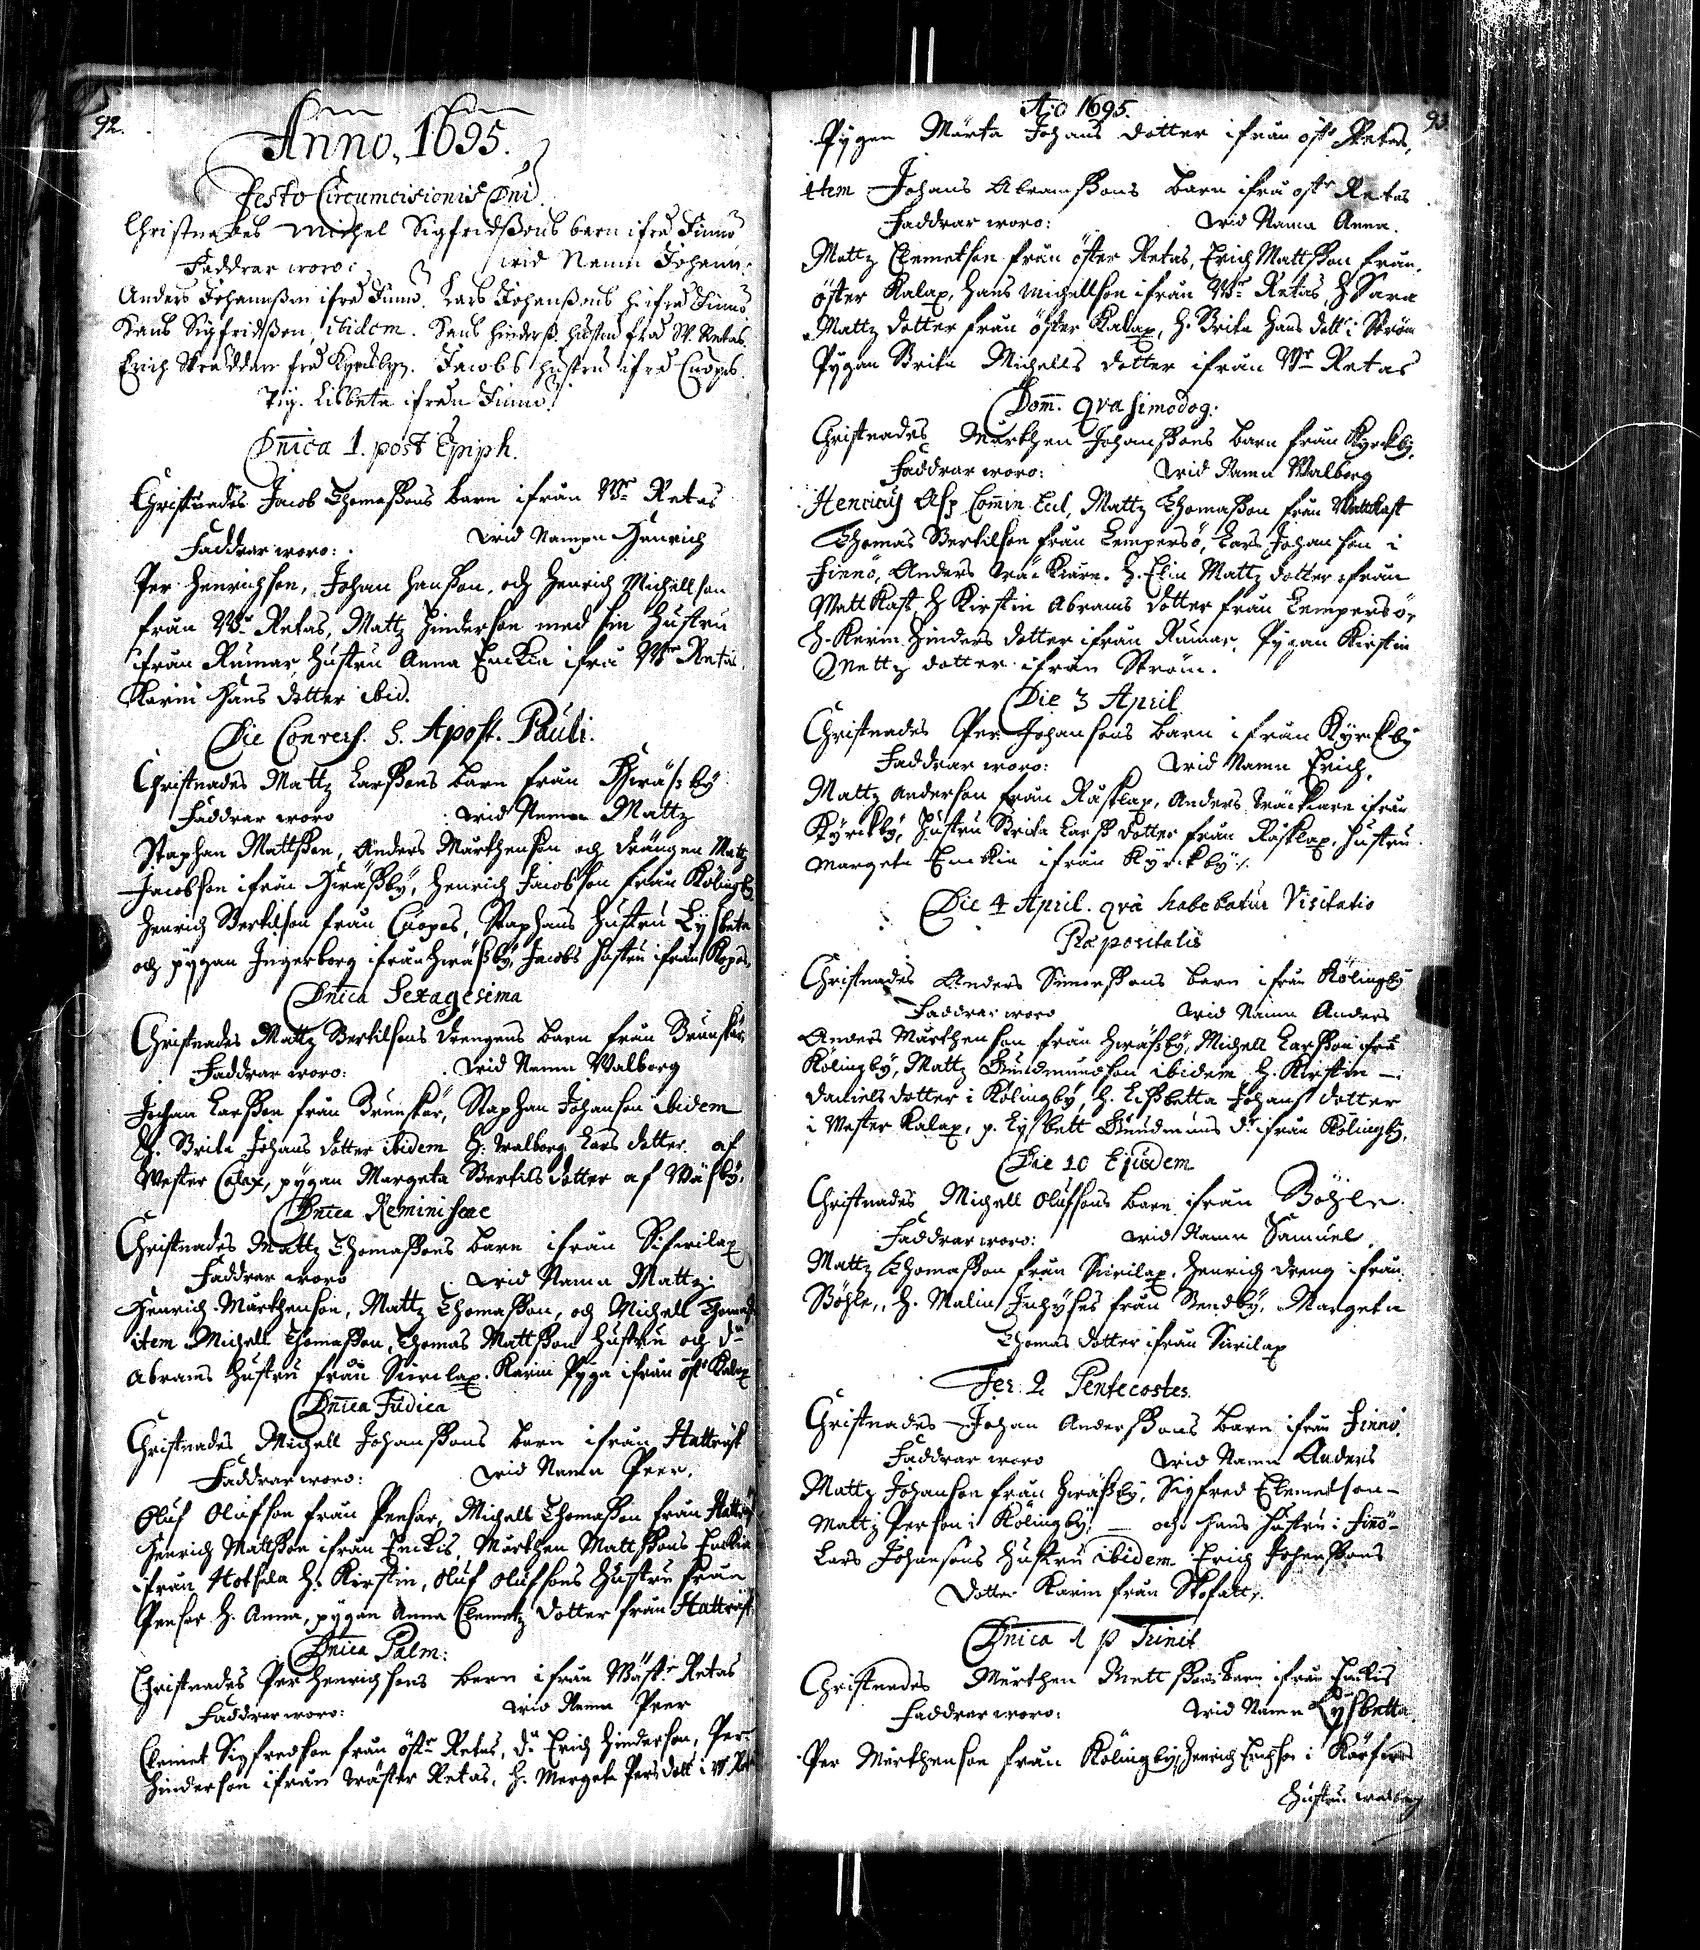 92.
Anno, 1695.
Festo Circumcisionis Dni
Christnades Michel Sigfridßons barn ifrå Finnö
Faddrar woro: wid Namn Johan
Anders Johanßon ifrå Finnö. Lars Johanßons h. ifrå Finnö
Hans Sigfridßon, ibidem. Hans Hinderß. hustru frå W. Retas
Erich Skräddare frå Kyrkbyn. Jacobs hustru ifrå Cuopas.
Pig. Lisbeta ifrån Finnö.
Dnica 1. post Epiph.
Christnades Jacob Thomaßons barn ifrån Wr Retas
Faddrar woro: wid Nampn Henrich
Per Henrichson, Johan Hanßon, och Henrich Michellson
från Wr Retas, Mattz Hinderson med sin Hustru
ifrån Rumar, Hustru Anna Enckia ifrå Wr Retas,
Karin Hans dotter ibid.
Die Convers. S. Apost. Pauli.
Christnades Mattz Larßons barn från Hwäßby
Faddrar woro wid Namn Mattz
Staphan Mattßon, Anders Mårthenßon och drängen Mattz
Jacobson ifrån Hwäßby, Henrich Jacobson från Kölingby
Henrich Bertilson från Cuopas, Staphans Hustru Lysbeta
och pygan Ingerborg ifrån Hwäßby, Jacobs Hustru ifrån Kopas.
Dnica Sexagesima
Christnades Mattz Bertilsons drengens barn från Brunskär
Faddrar woro: wid Namn Walborg
Johan Larßon från Brunskär, Staphan Johanson ibidem
H. Brita Johans dotter ibidem H. Walborg Lars dotter af
Wester Calax, pygan Margeta Bertils dotter af Wäsby.
Dnica Reminiscae
Christnades Mattz Thomaßons barn ifrån
Faddrar woro wid Namn Mattz.
Henrich Mårthenson, Mattz Thomaßon, och Michell Thomaß
item Michell Thomaßon, Thomas Mattßon Hustru och
Abrams Hustru från Karin Pyga ifrån öst Kalax
Dnica Judica
Christnades Michell Johanßons barn ifrån Hattväst
Faddrar woro: wid Namn Peer.
Oluf Olufson från Pensar, Michell Thomaßon från
Henrich Mattßon ifrån Enckis, Mårthen Mattßons Enckia
ifrån H. Kirstin, Oluf Olufsons Hustru från
Pensar H. Anna, pygan Anna Clemetz dotter från
Dnica Palm:
Christnades Per Henrichsons barn ifrån Wästr Retas
Faddrar woro: wid Namn Peer
Clemet Sigfredson från östr Retas, Erich Hinderson, Per
Hinderson ifrån wäster Retas, H. Margeta Pers dott i W. Ret
Ao 1695.
93
Pygan Märta Johans dotter ifrån östr Retas,
item Johans Abramßons barn ifrå ostr Retas
Faddrar woro: wid Namn Anna.
Mattz Clemetson från öster Retas, Erich Mattßon från
öster Kalax, Hans Michellson ifrån Wr Retas, H Sara
Mattz dotter från öster Kalax, H. Brita Hans dottr i Ström
Pygan Brita Michells dotter ifrån Wr Retas
Dom. Qvasimodog:
Christnades Mårthen Johanßons barn från Kyrckby,
Faddrar woro: wid Namn Walborg
Henricus Comin Mattz Thomaßon från Wattkast
Thomas Bertilson från Lempersö, Lars Johanson i
Finnö, Anders H. Elin Mattz dotter från
Wattkast, H Kirstin Abrams dotter från Lempersö,
H. Karin Hinders dotter ifrån Rumar, Pygan Kirstin
Mattz dotter ifrån Ström.
Die 3 April
Christnades Per Johansons barn ifrån Kyrckby
Faddrar woro: wid Namn Erich,
Mattz Anderson från Råsklax, Anders ifrån
Kyrckby, Hustru Brita Larß dotter från Råsklax, Hustru
Margeta Enckia ifrån Kyrckby
Die 4 April. qvâ habebatur Visitatio
Præpositalis
Christnades Anders Simonßons barn ifrån Kölingby
Faddrar woro wid Namn Anders
Anders Mårthenson från Hwäßby, Michell Larßon ifrå
Kölingby, Mattz Gundmundson ibidem H. Kirstin
Daniels dotter i Kölingby, H. Lißbetta Johans dotter
i Wester Kalax, p. Lysbett Gundmuns dr ifrån Kölingby.
Die 10 Ejusdem
Christnades Michell Olufsons barn ifrån Böhle
Faddrar woro: wid Namn Samuel.
Mattz Thomaßon från Henrich dreng ifrån
Böhle, H. Malin från Bendby, Margeta
Thomas dotter ifrån
Fer. 2 Pentecostes.
Christnades Johan Anderßons barn ifrån Finnö,
Faddrar woro wid Namn Anders
Mattz Johanson från Hwäßby, Sigfred Clemetson
Mattz Person i Kölingby, och Hans Hustru i Finnö
Lars Johansons Hustru ibidem Erich Johanßons
dotter Karin från
Dnica 1 p Trinit
Christnades Mårthen Mattßons barn ifrån Enckis
Faddrar woro: wid Namn Lysbetta.
Per Mårthenson från Kölingby, Henrich Erichson i
Hustru Walborg